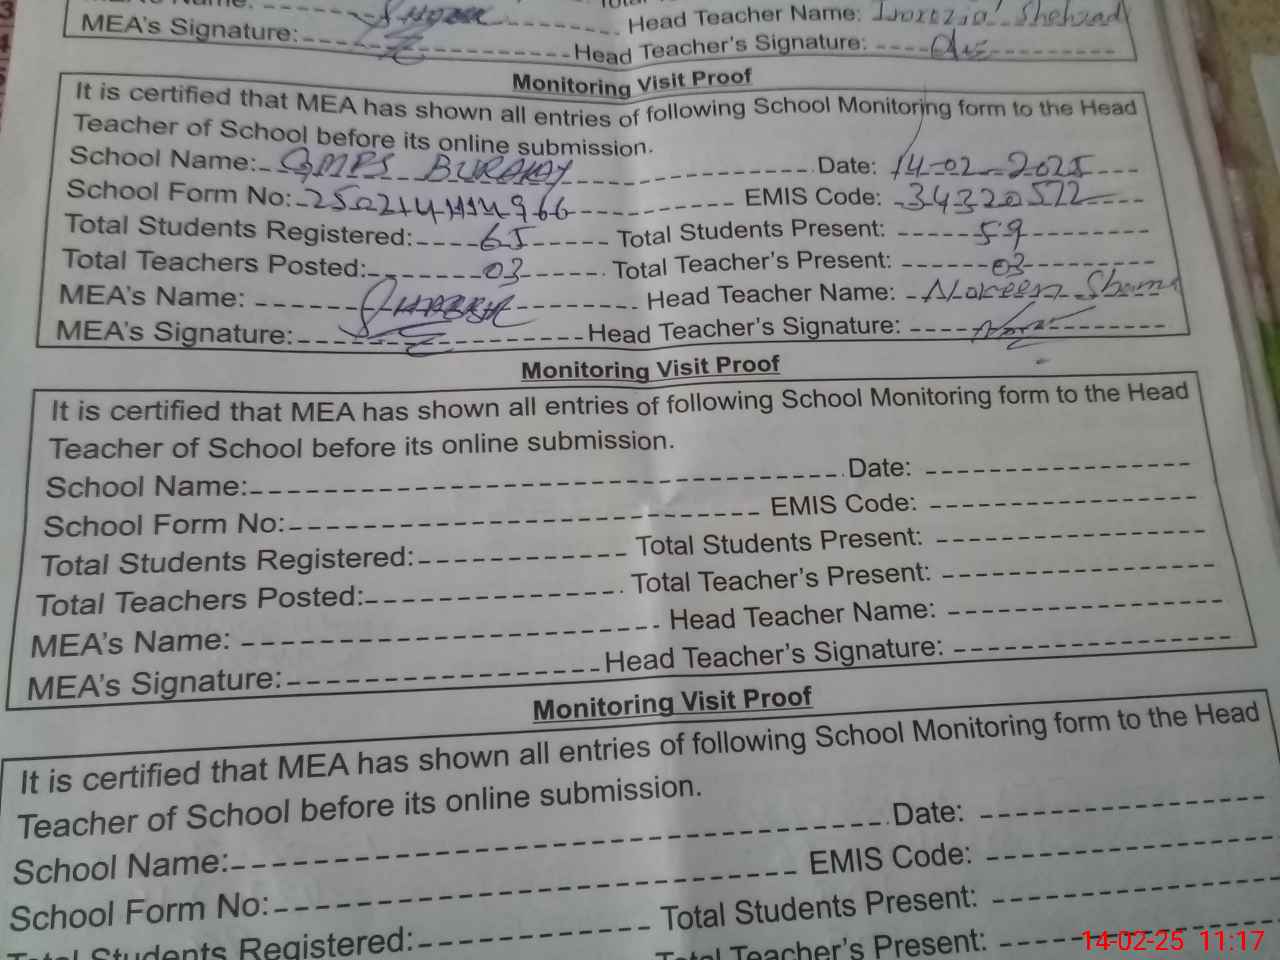 Head Teacher Name: Shehzad
MEA's Signature: Head Teacher's Signature:
Monitoring Visit Proof
It is certified that MEA has shown all entries of following School Monitoring form to the Head
Teacher of School before its online submission.
School Name: GMPS BURAKAY Date: 14-02-2025
School Form No: EMIS Code: 34320572
Total Students Registered: 65 Total Students Present: 59
Total Teachers Posted: 03 Total Teacher's Present: 03
MEA's Name: Head Teacher Name:
MEA's Signature: Head Teacher's Signature:
Monitoring Visit Proof
It is certified that MEA has shown all entries of following School Monitoring form to the Head
Teacher of School before its online submission.
School Name: Date:
School Form No: EMIS Code:
Total Students Registered: Total Students Present:
Total Teachers Posted: Total Teacher's Present:
MEA's Name: Head Teacher Name:
MEA's Signature: Head Teacher's Signature:
Monitoring Visit Proof
It is certified that MEA has shown all entries of following School Monitoring form to the Head
Teacher of School before its online submission.
School Name: Date:
School Form No: EMIS Code:
Total Students Registered: Total Students Present:
Total Teacher's Present:
14-02-25 11:17